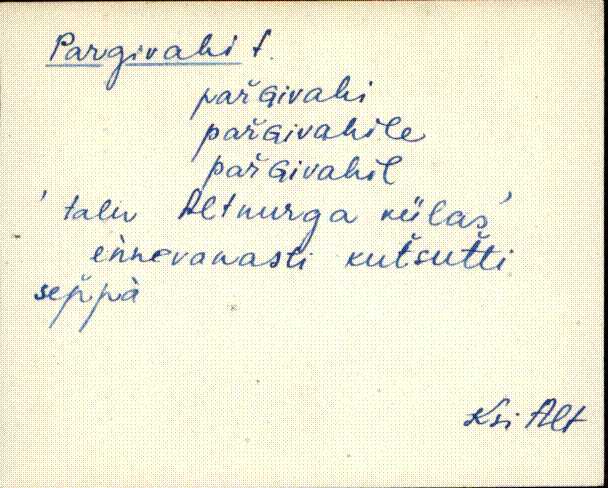 Pargivahi t.
paŕGivahi
paŕGivahile
paŕGivahil
' talu Altnurga külas'
ennevanasti kutšutti
seppä
Ksi Alt